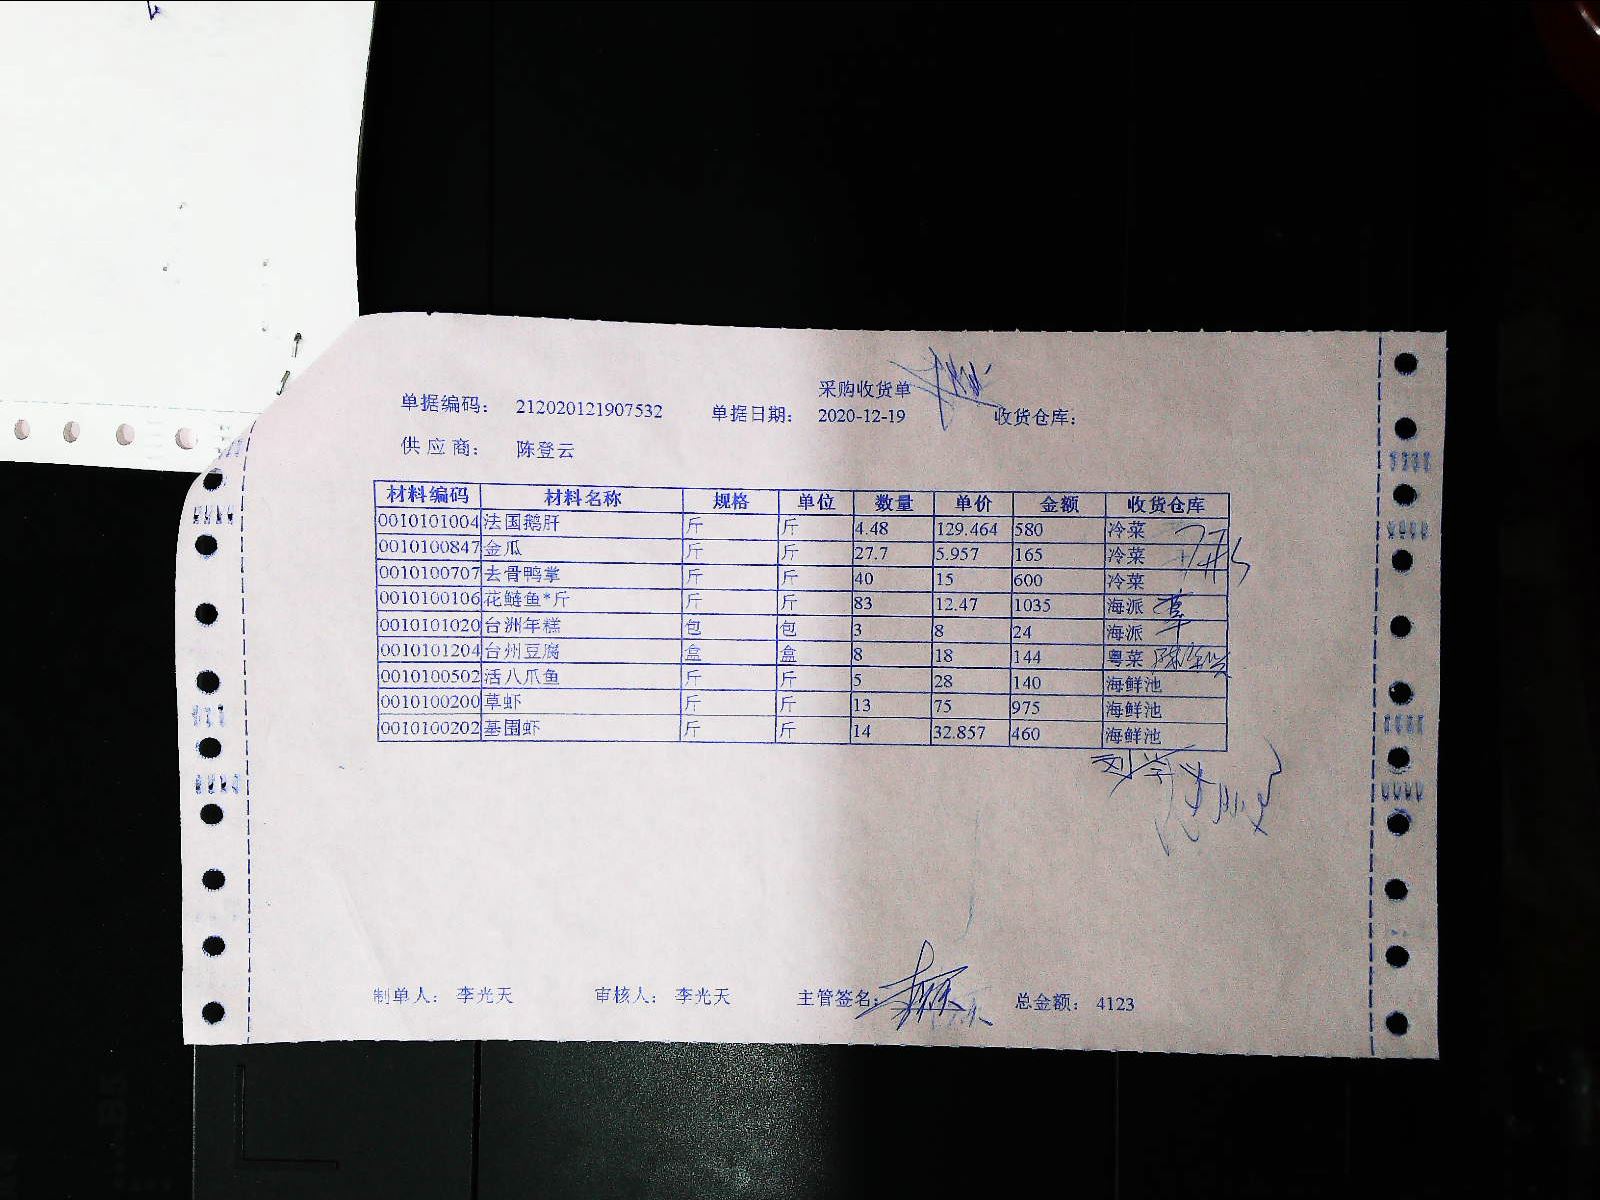 采购收货单
单据编码： 212020121907532 单据日期： 2020-12-19 收货仓库：
供应商： 陈登云
材料编码 材料名称 规格 单位 数量 单价 金额 收货仓库
0010101004 法国鹅肝 斤 斤 4.48 129.464 580 冷菜
0010100847 金瓜 斤 斤 27.7 5.957 165 冷菜
0010100707 去骨鸭掌 斤 斤 40 15 600 冷菜
0010100106 花鲢鱼*斤 斤 斤 83 12.47 1035 海派
0010101020 台洲年糕 包 包 3 8 24 海派
0010101204 台州豆腐 盒 盒 8 18 144 粤菜
0010100502 活八爪鱼 斤 斤 5 28 140 海鲜池
0010100200 草虾 斤 斤 13 75 975 海鲜池
0010100202 基围虾 斤 斤 14 32.857 460 海鲜池
制单人： 李光天 审核人： 李光天 主管签名： 总金额： 4123